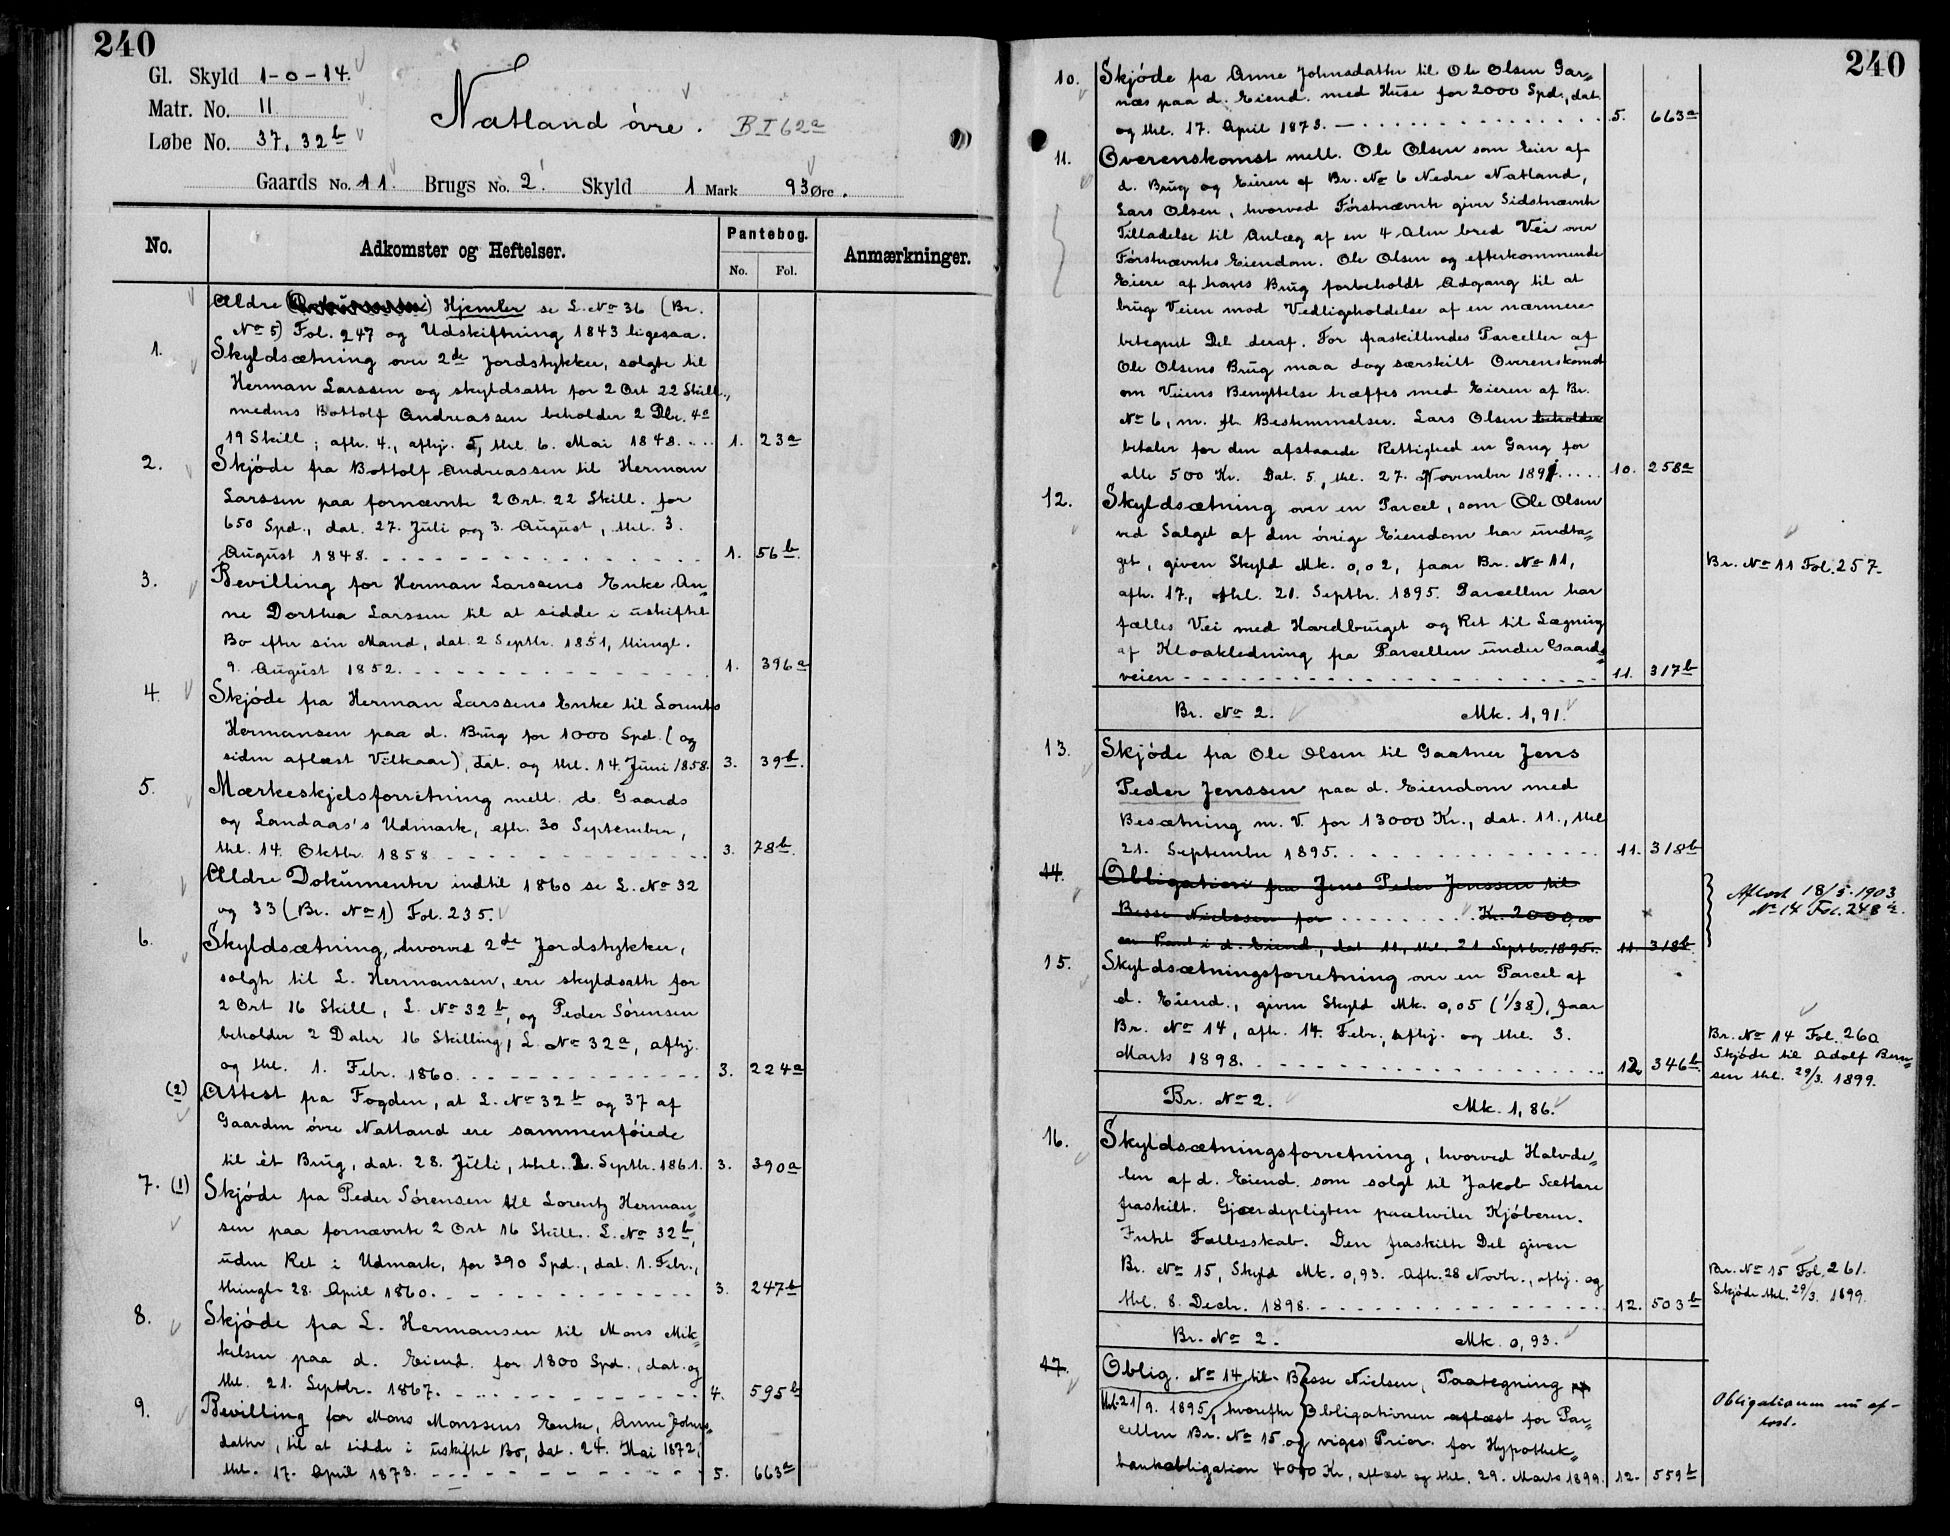 240
Gl. Skyld 1-0-14.
Matr. No. 11
Løbe No. 37, 32b
Natland övre. B I 62a
Gaards No. 11. Brugs No. 2. Skyld 1 Mark 93 Øre.
No. Adkomster og Heftelser. Pantebog. No. Fol. Anmærkninger.
Ældre Hjemler se L. No 36 (Br.
No 5) Fol. 247 og Udskiftning 1843 ligesaa.
1. Skyldsætning over 2de Jordstykker, solgte til
Herman Larssen og skyldsatte for 2 Ort 22 Skill.,
medens Bottolf Andreassen beholder 2 Dlr. 4o
19 Skill; afh. 4., afhj. 5, thl. 6. Mai 1848. 1. 23a
2. Skjöde fra Bottolf Andreassen til Herman
Larssen paa fornævnte 2 Ort. 22 Skill. for
650 Spd., dat. 27. Juli og 3. August, thl. 3.
August 1848. 1. 56b.
3. Bevilling for Herman Larssens Enke An-
ne Dorthea Larssen til at sidde i uskiftet
Bo efter sin Mand, dat. 2 Septbr. 1851, thingl.
9. August 1852. 1. 396a
4. Skjöde fra Herman Larssens Enke til Lorents
Hermansen paa d. Brug for 1000 Spd. (og
siden aflæst Vilkaar), dat. og thl. 14. Juni 1858. 3. 39b.
5. Mærkeskjelsforretning mell. d. Gaards
og Landaas's Udmark, afh. 30 September,
thl. 14. Oktbr. 1858 3. 78b.
Ældre Dokumenter indtil 1860 se L. No 32
og 33 (Br. No 1) Fol. 235.
6. Skyldsætning, hvorved 2de Jordstykker,
solgte til L. Hermansen, ere skyldsatte for
2 Ort 16 Skill, L. No 32b, og Peder Sörensen
beholder 2 Daler 16 Skilling, L. No 32a, afhj.
og thl. 1. Febr. 1860. 3. 224a
(2) Attest fra Fogden, at L. No 32b og 37 af
Gaarden övre Natland ere sammenföiede
til ét Brug, dat. 28. Juli, thl. 2. Septbr. 1861. 3. 390a
7. (1) Skjöde fra Peder Sörensen til Lorentz Herman-
sen paa fornævnte 2 Ort 16 Skill. L. No 32b,
uden Ret i Udmark, for 390 Spd., dat. 1. Febr.,
thingl. 28. April 1860. 3. 247b
8. Skjöde fra L. Hermansen til Mons Mik-
kelsen paa d. Eiend. for 1800 Spd., dat. og
thl. 21. Septbr. 1867. 4. 595b
9. Bevilling for Mons Monssens Enke, Anne Johns-
datter, til at sidde i uskiftet Bo, dat. 24. Mai 1872,
thl. 17. April 1873. 5. 663a
240
10. Skjöde fra Anne Johnsdatter til Ole Olsen Gar-
næs paa d. Eiend. med Huse for 2000 Spd., dat.
og thl. 17. April 1873. 5. 663a
11. Overenskomst mell. Ole Olsen som Eier af
d. Brug og Eieren af Br. No 6 Nedre Natland,
Lars Olsen, hvorved Förstnævnte giver Sidstnævnte
Tilladelse til Anlæg af en 4 Alen bred Vei over
Förstnævntes Eiendom. Ole Olsen og efterkommende
Eiere af hans Brug forbeholdt Adgang til at
bruge Veien mod Vedligeholdelse af en nærmere
betegnet Del deraf. For fraskillendes Parceller af
Ole Olsens Brug maa dog særskilt Overenskomst
om Veiens Benyttelse træffes med Eieren af Br.
No 6, m. fl. Bestemmelser. Lars Olsen beholder
betaler for den afstaaede Rettighed en Gang for
alle 500 Kr. Dat. 5., thl. 27. November 1891. 10. 258a
12. Skyldsætning over en Parcel, som Ole Olsen
ved Salget af den övrige Eiendom har undta-
get, given Skyld Mk. 0,02, faar Br. No 11, Br. No 11 Fol. 257.
afh. 17., thl. 21. Septbr. 1895. Parcellen har
fælles Vei med Hovedbruget og Ret til Lægning
af Kloakledning fra Parcellen under Gaards-
veien 11. 317b
Br. No 2. Mk. 1,91.
13. Skjöde fra Ole Olsen til Gartner Jens
Peder Jenssen paa d. Eiendom med
Besætning m. V. for 13000 Kr., dat. 11., thl.
21. September 1895. 11. 318b
14. Obligation fra Jens Peder Jenssen til
Besse Nielssen for Kr. 2000,00
en Pant i d. Eiend., dat. 11., thl. 21 Septbr. 1895. 11. 318b.
Aflæst 18/5. 1903
No 14 Fol. 248a.
15. Skyldsætningsforretning over en Parcel af
d. Eiend., given Skyld Mk. 0,05 (1/38), faar
Br. No 14, afh. 14. Febr., afhj. og thl. 3.
Marts 1898. 12. 346b.
Br. No 14 Fol. 260
Skjöde til Adolf
thl. 29/3. 1899.
Br. No 2. Mk. 1,86.
16. Skyldsætningsforretning, hvorved Halvde-
len af d. Eiend. som solgt til Jakob Sættere
fraskilt. Gjærdepligten paahviler Kjöberen.
Intet Fællesskab. Den fraskilte Del given
Br. No 15, Skyld Mk. 0,93. Afh. 28 Novbr., afhj. og
thl. 8. Decbr. 1898. 12. 503b
Br. No 15 Fol. 261.
Skjöde thl. 29/3. 1899.
Br. No 2. Mk. 0,93.
17. Oblig. No 14 til Besse Nielsen, Paategning
thl. 21/9. 1895, hvorefter Obligationen aflæst for Par-
cellen Br. No 15 og viger Prior. for Hypothek-
bankobligation 4000 Kr, aflæst og thl. 29. Marts 1899. 12. 559b
Obligationen nu af-
læst.